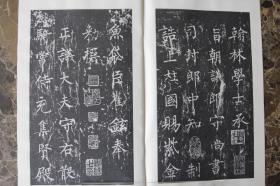 翰林學士承
旨朝議郎守尚書
司封郎中知制
誥上柱國賜紫金
魚袋臣崔鉉奉
勅撰
正議大夫守右散
騎常侍充集賢殿